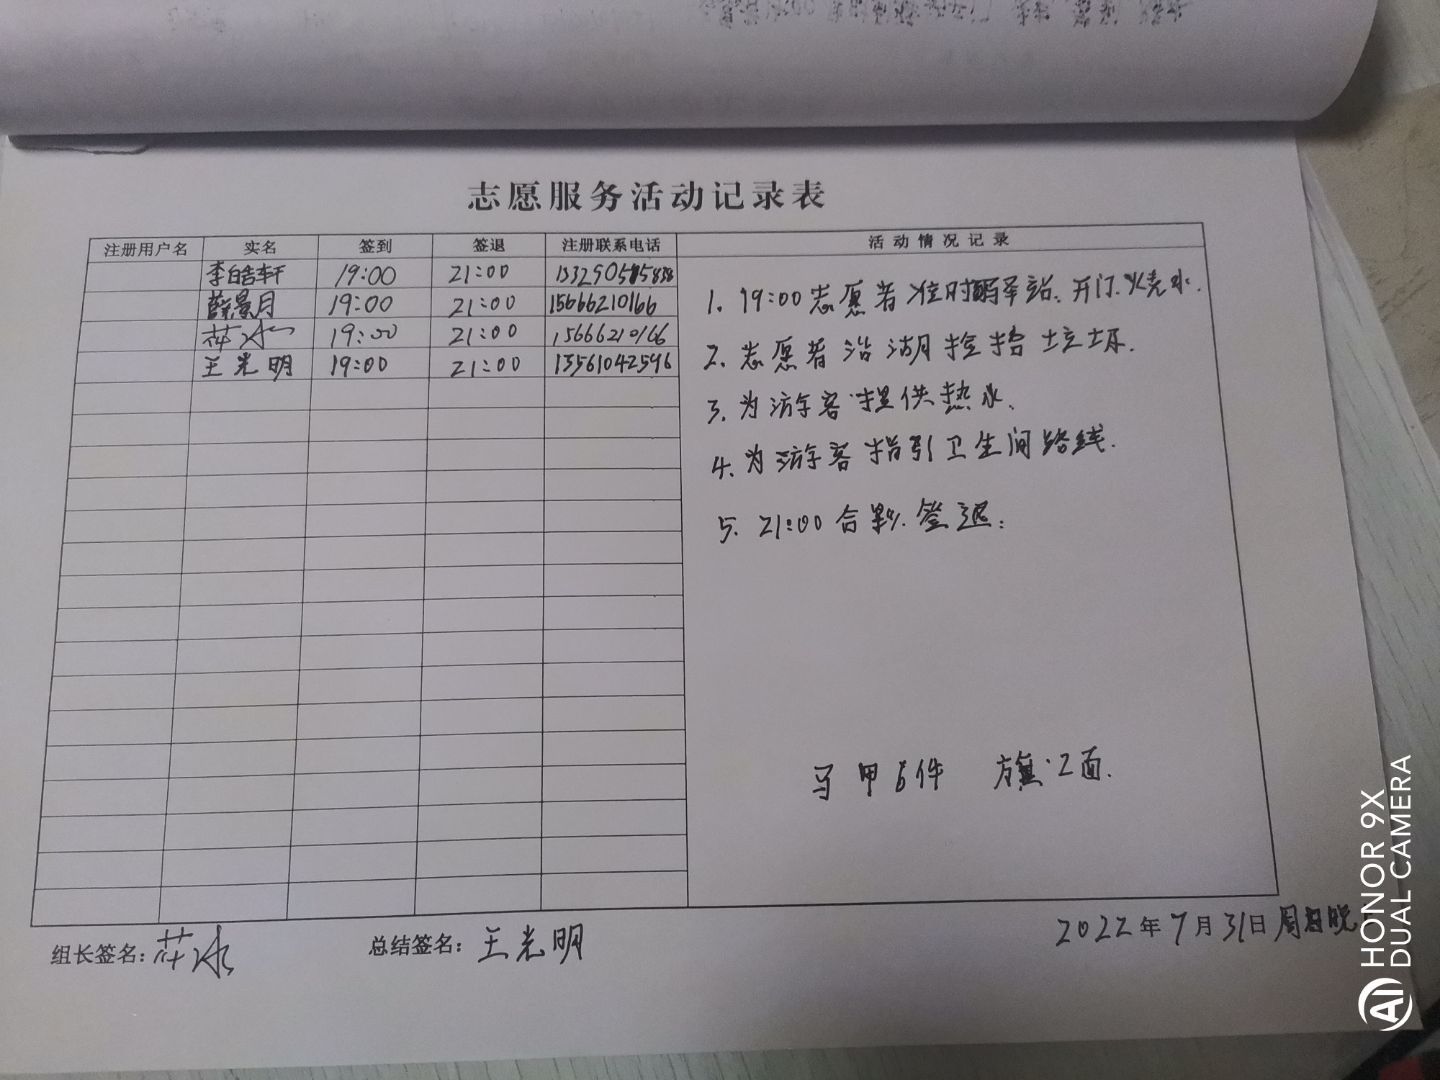 志愿服务活动记录表
注册用户名 实名 签到 签退 注册联系电话 活动情况记录
李皓轩 19:00 21:00
薛景月 19:00 21:00 15666210166
19:00 21:00 15666210166
王光明 19:00 21:00 13561042596
1. 19:00志愿者准时到驿站.开门.烧水.
2. 志愿者沿湖捡拾垃圾.
3. 为游客提供热水.
4. 为游客指引卫生间路线.
5. 21:00合影.签退.
马甲6件 旗2面.
组长签名: 总结签名: 王光明 2022年7月31日周日晚
HONOR 9X
AI DUAL CAMERA